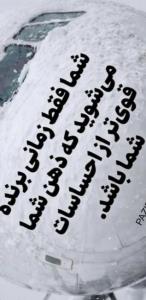 شما فقط زمانی برنده
می‌شوید که ذهن شما
قوی‌تر از احساسات
شما باشد.